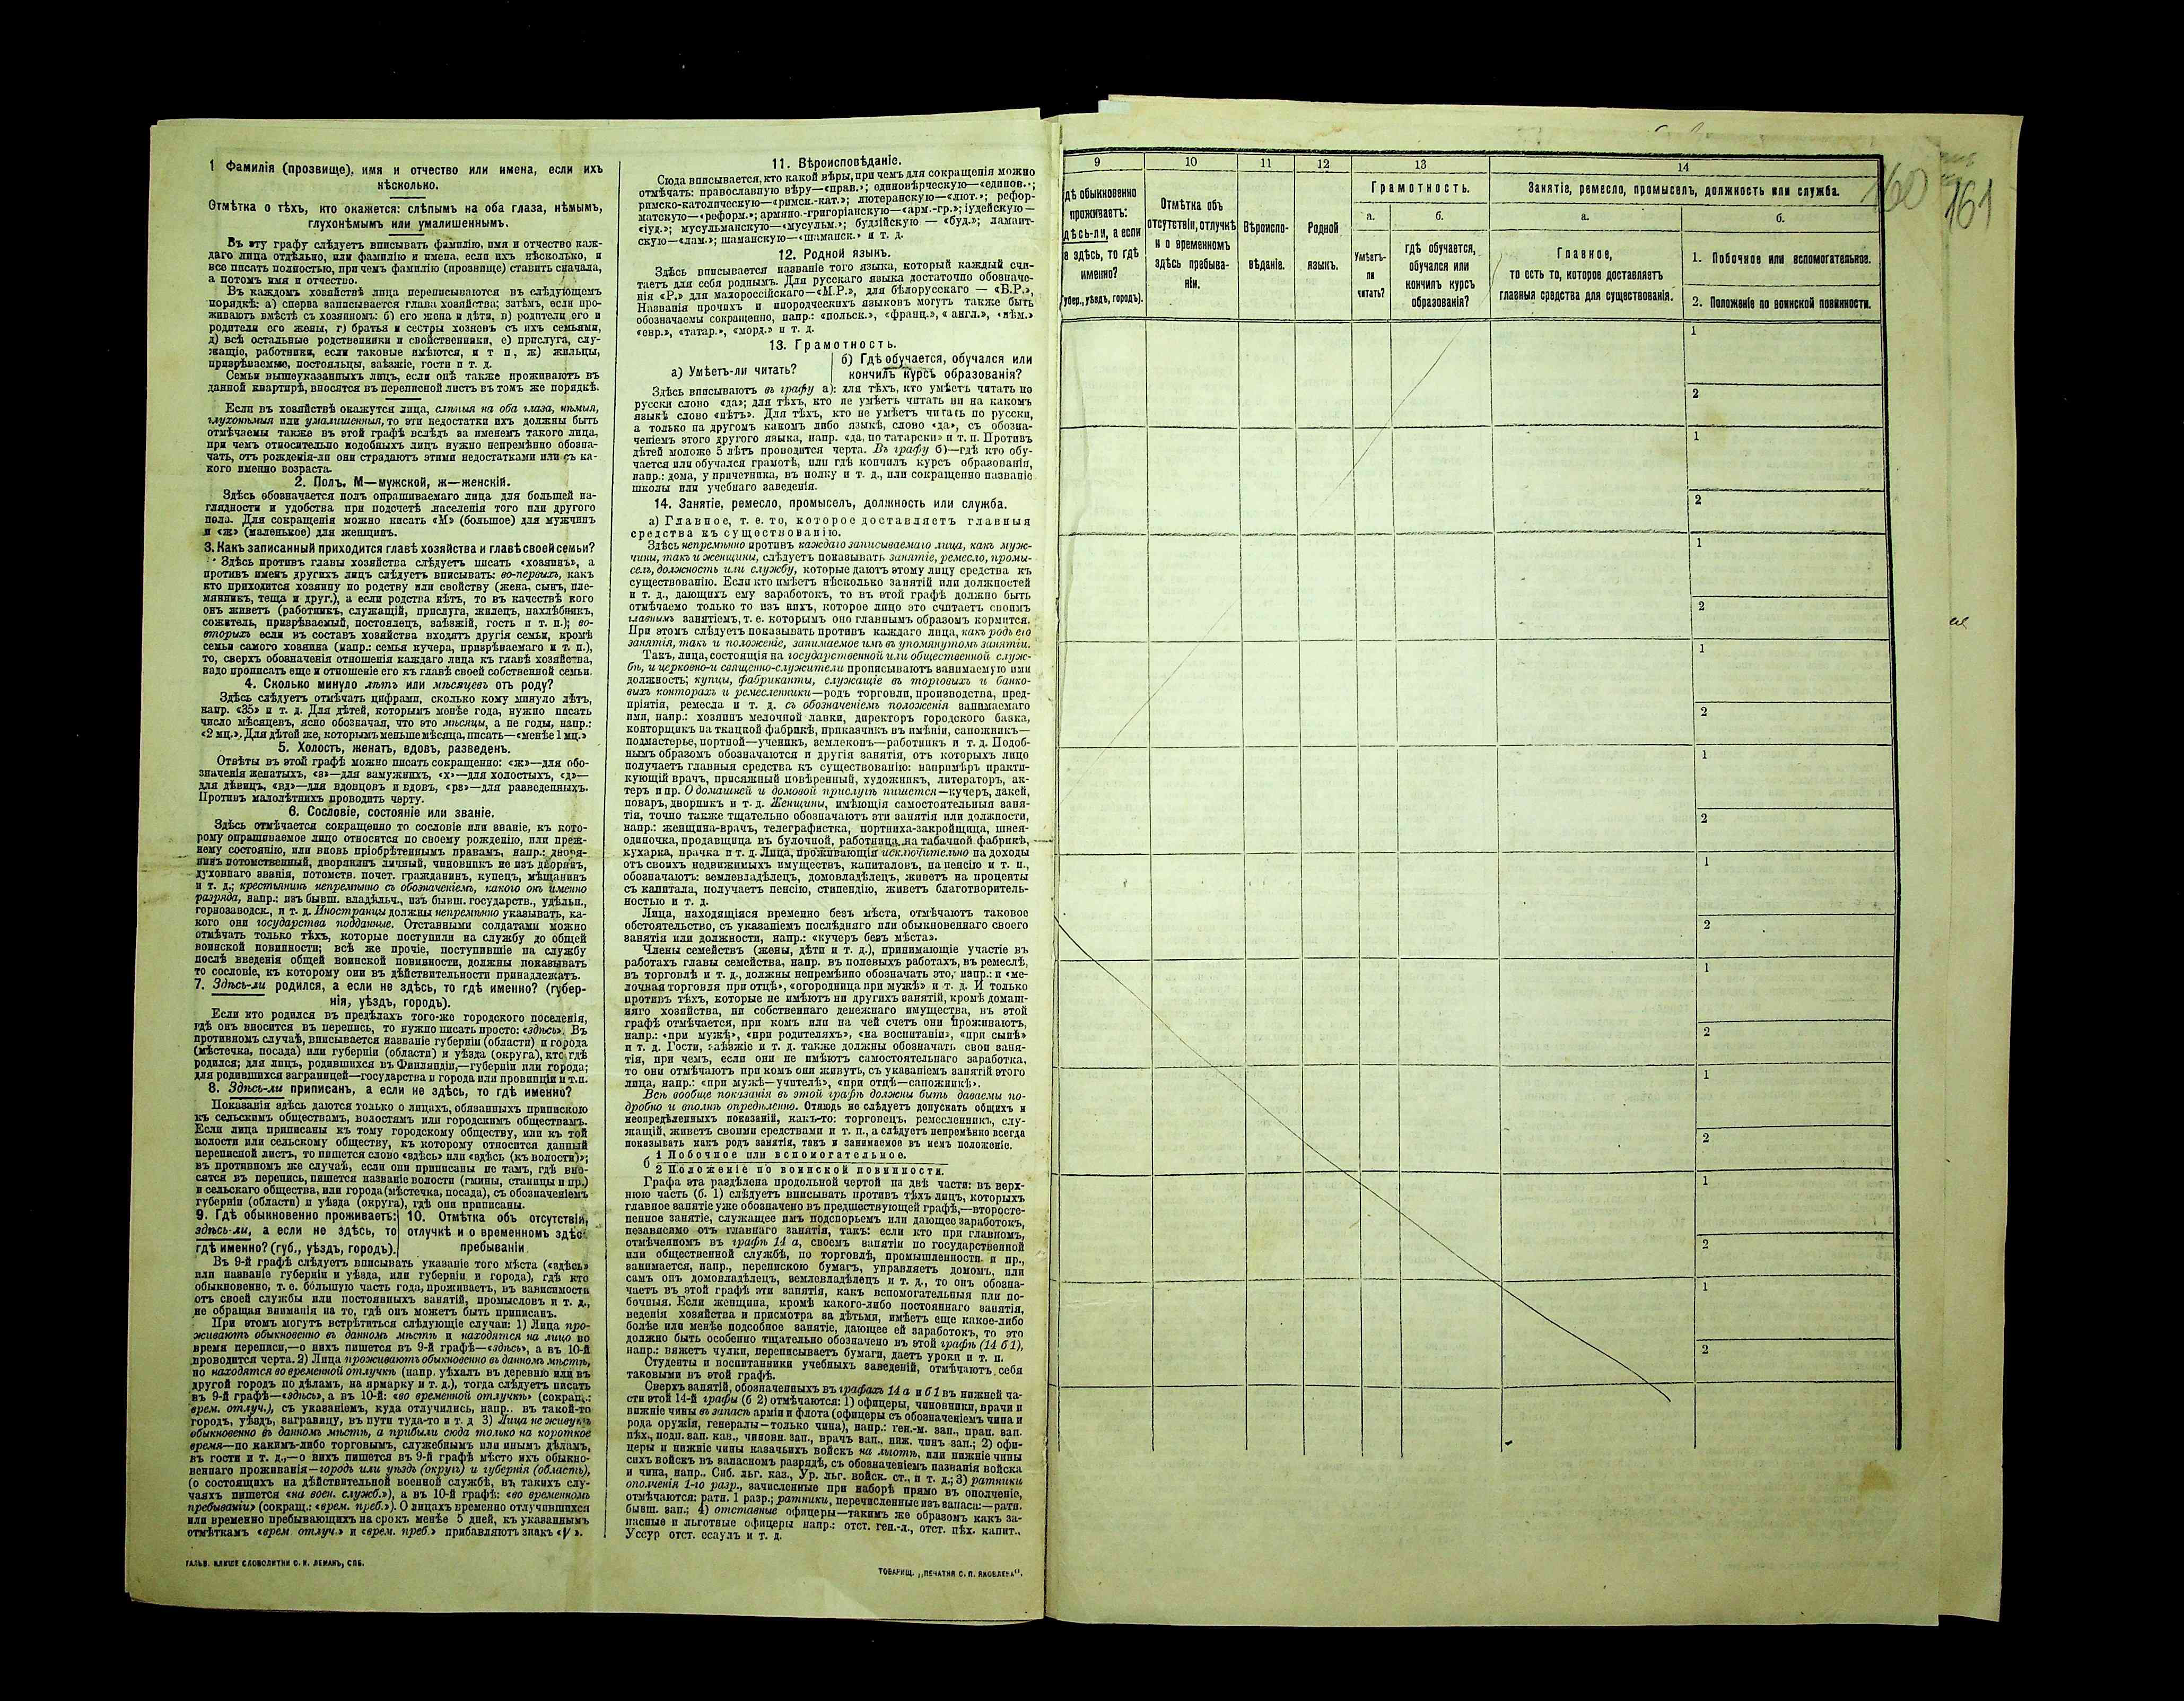 1 Фамилія (прозвище), имя и отчество или имена, если ихъ
нѣсколько.
Отмѣтка о тѣхъ, кто окажется: слѣпымъ на оба глаза, нѣмымъ,
глухонѣмымъ или умалишеннымъ.
Въ эту графу слѣдуетъ вписывать фамилію, имя и отчество каж-
даго лица отдѣльно, или фамилію и имена, если ихъ нѣсколько, и
все писать полностью, при чемъ фамилію (прозвище) ставить сначала,
а потомъ имя и отчество.
Въ каждомъ хозяйствѣ лица переписываются въ слѣдующемъ
порядкѣ: а) сперва записывается глава хозяйства; затѣмъ, если про-
живаютъ вмѣстѣ съ хозяиномъ: б) его жена и дѣти, в) родители его и
родители его жены, г) братья и сестры хозяевъ съ ихъ семьями,
д) всѣ остальные родственники и свойственники, е) прислуга, слу-
жащіе, работники, если таковые имѣются, и т п, ж) жильцы,
призрѣваемые, постояльцы, заѣзжіе, гости и т. д.
Семьи вышеуказанныхъ лицъ, если онѣ также проживаютъ въ
данной квартирѣ, вносятся въ переписной листъ въ томъ же порядкѣ.
Если въ хозяйствѣ окажутся лица, слѣпыя на оба глаза, нѣмыя,
глухонѣмыя или умалишенныя, то эти недостатки ихъ должны быть
отмѣчаемы также въ этой графѣ вслѣдъ за именемъ такого лица,
при чемъ относительно подобныхъ лицъ нужно непремѣнно обозна-
чать, отъ рожденія-ли они страдаютъ этими недостатками или съ ка-
кого именно возраста.
2. Полъ. М—мужской, ж—женскій.
Здѣсь обозначается полъ опрашиваемаго лица для большей на-
глядности и удобства при подсчетѣ населенія того или другого
пола. Для сокращенія можно писать «М» (большое) для мужчинъ
и «ж» (маленькое) для женщинъ.
3. Какъ записанный приходится главѣ хозяйства и главѣ своей семьи?
Здѣсь противъ главы хозяйства слѣдуетъ писать «хозяинъ», а
противъ именъ другихъ лицъ слѣдуетъ вписывать: во-первыхъ, какъ
кто приходится хозяину по родству или свойству (жена, сынъ, пле-
мянникъ, теща и друг.), а если родства нѣтъ, то въ качествѣ кого
онъ живетъ (работникъ, служащій, прислуга, жилецъ, нахлѣбникъ,
сожитель, призрѣваемый, постоялецъ, заѣзжій, гость и т. п.); во-
вторыхъ если въ составъ хозяйства входятъ другія семьи, кромѣ
семьи самого хозяина (напр.: семья кучера, призрѣваемаго и т. п.),
то, сверхъ обозначенія отношенія каждаго лица къ главѣ хозяйства,
надо прописать еще и отношеніе его къ главѣ своей собственной семьи.
4. Сколько минуло лѣтъ или мѣсяцевъ отъ роду?
Здѣсь слѣдуетъ отмѣчать цифрами, сколько кому минуло лѣтъ,
напр. «35» и т. д. Для дѣтей, которымъ менѣе года, нужно писать
число мѣсяцевъ, ясно обозначая, что это мѣсяцы, а не годы, напр.:
«2 мц.». Для дѣтей же, которымъ меньше мѣсяца, писать—«менѣе 1 мц.»
5. Холостъ, женатъ, вдовъ, разведенъ.
Отвѣты въ этой графѣ можно писать сокращенно: «ж»—для обо-
значенія женатыхъ, «з»—для замужнихъ, «х»—для холостыхъ, «д»—
для дѣвицъ, «вд»—для вдовцовъ и вдовъ, «рв»—для разведенныхъ.
Противъ малолѣтнихъ проводить черту.
6. Сословіе, состояніе или званіе.
Здѣсь отмѣчается сокращенно то сословіе или званіе, къ кото-
рому опрашиваемое лицо относится по своему рожденію, или преж-
нему состоянію, или вновь пріобрѣтеннымъ правамъ, напр.: дворя-
нинъ потомственный, дворянинъ личный, чиновникъ не изъ дворянъ,
духовнаго званія, потомств. почет. гражданинъ, купецъ, мѣщанинъ
и т. д.; крестьянинъ непремѣнно съ обозначеніемъ, какого онъ именно
разряда, напр.: изъ бывш. владѣльч., изъ бывш. государств., удѣльн.,
горнозаводск., и т. д. Иностранцы должны непремѣнно указывать, ка-
кого они государства подданные. Отставными солдатами можно
отмѣчать только тѣхъ, которые поступили на службу до общей
воинской повинности; всѣ же прочіе, поступившіе на службу
послѣ введенія общей воинской повинности, должны показывать
то сословіе, къ которому они въ дѣйствительности принадлежатъ.
7. Здѣсь-ли родился, а если не здѣсь, то гдѣ именно? (губер-
нія, уѣздъ, городъ).
Если кто родился въ предѣлахъ того-же городского поселенія,
гдѣ онъ вносится въ перепись, то нужно писать просто: «здѣсь». Въ
противномъ случаѣ, вписывается названіе губерніи (области) и города
(мѣстечка, посада) или губерніи (области) и уѣзда (округа), кто гдѣ
родился; для лицъ, родившихся въ Финляндіи,—губерніи или города;
для родившихся заграницей—государства и города или провинціи и т.п.
8. Здѣсь-ли приписанъ, а если не здѣсь, то гдѣ именно?
Показанія здѣсь даются только о лицахъ, обязанныхъ припискою
къ сельскимъ обществамъ, волостямъ или городскимъ обществамъ.
Если лица приписаны къ тому городскому обществу, или къ той
волости или сельскому обществу, къ которому относится данный
переписной листъ, то пишется слово «здѣсь» или «здѣсь (къ волости)»;
въ противномъ же случаѣ, если они приписаны не тамъ, гдѣ вно-
сятся въ перепись, пишется названіе волости (гмины, станицы и пр.)
и сельскаго общества, или города (мѣстечка, посада), съ обозначеніемъ
губерніи (области) и уѣзда (округа), гдѣ они приписаны.
9. Гдѣ обыкновенно проживаетъ:
здѣсь-ли, а если не здѣсь, то
гдѣ именно? (губ., уѣздъ, городъ).
10. Отмѣтка объ отсутствіи,
отлучкѣ и о временномъ здѣс
пребываніи
Въ 9-й графѣ слѣдуетъ вписывать указаніе того мѣста («здѣсь»
или названіе губерніи и уѣзда, или губерніи и города), гдѣ кто
обыкновенно, т. е. бо́льшую часть года, проживаетъ, въ зависимости
отъ своей службы или постоянныхъ занятій, промысловъ и т. д.,
не обращая вниманія на то, гдѣ онъ можетъ быть приписанъ.
При этомъ могутъ встрѣтиться слѣдующіе случаи: 1) Лица про-
живаютъ обыкновенно въ данномъ мѣстѣ и находятся на лицо во
время переписи,—о нихъ пишется въ 9-й графѣ—«здѣсь», а въ 10-й
проводится черта. 2) Лица проживаютъ обыкновенно въ данномъ мѣстѣ,
но находятся во временной отлучкѣ (напр. уѣхалъ въ деревню или въ
другой городъ по дѣламъ, на ярмарку и т. д.), тогда слѣдуетъ писать
въ 9-й графѣ—«здѣсь», а въ 10-й: «во временной отлучкѣ» (сокращ.:
врем. отлуч.), съ указаніемъ, куда отлучились, напр.. въ такой-то
городъ, уѣздъ, заграницу, въ пути туда-то и т. д 3) Лица не живутъ
обыкновенно въ данномъ мѣстѣ, а прибыли сюда только на короткое
время—по какимъ-либо торговымъ, служебнымъ или инымъ дѣламъ,
въ гости и т. д.,—о нихъ пишется въ 9-й графѣ мѣсто ихъ обыкно-
веннаго проживанія—городъ или уѣздъ (округъ) и губернія (область),
(о состоящихъ на дѣйствительной военной службѣ, въ такихъ слу-
чаяхъ пишется «на воен. служб.»), а въ 10-й графѣ: «во временномъ
пребываніи» (сокращ.: «врем. преб.»). О лицахъ временно отлучившихся
или временно пребывающихъ на срокъ менѣе 5 дней, къ указаннымъ
отмѣткамъ «врем отлуч.» и «врем. преб.» прибавляютъ знакъ «V».
ГАЛЬВ. КЛИШЕ СЛОВОЛИТНИ О. И. ЛЕМАНЪ, СПБ.
11. Вѣроисповѣданіе.
Сюда вписывается, кто какой вѣры, при чемъ для сокращенія можно
отмѣчать: православную вѣру—«прав.»; единовѣрческую—«единов.»;
римско-католическую—«римск.-кат.»; лютеранскую—«лют.»; рефор-
матскую—«реформ.»; армяно-григоріанскую—«арм.-гр.»; іудейскую—
«іуд.»; мусульманскую—«мусульм.»; буддійскую — «буд.»; ламаит-
скую—«лам.»; шаманскую—«шаманск.» и т. д.
12. Родной языкъ.
Здѣсь вписывается названіе того языка, который каждый счи-
таетъ для себя роднымъ. Для русскаго языка достаточно обозначе-
нія «Р.» для малороссійскаго—«М.Р.», для бѣлорусскаго — «Б.Р.»,
Названія прочихъ и инородческихъ языковъ могутъ также быть
обозначаемы сокращенно, напр.: «польск.», «франц.», « англ.», «нѣм.»
«евр.», «татар.», «морд.» и т. д.
13. Грамотность.
а) Умѣетъ-ли читать?
б) Гдѣ обучается, обучался или
кончилъ курсъ образованія?
Здѣсь вписываютъ въ графу а): для тѣхъ, кто умѣетъ читать по
русски слово «да»; для тѣхъ, кто не умѣетъ читать ни на какомъ
языкѣ слово «нѣтъ». Для тѣхъ, кто не умѣетъ читать по русски,
а только на другомъ какомъ либо языкѣ, слово «да», съ обозна-
ченіемъ этого другого языка, напр. «да, по татарски» и т. п. Противъ
дѣтей моложе 5 лѣтъ проводится черта. Въ графу б)—гдѣ кто обу-
чается или обучался грамотѣ, или гдѣ кончилъ курсъ образованія,
напр.: дома, у причетника, въ полку и т. д., или сокращенно названіе
школы или учебнаго заведенія.
14. Занятіе, ремесло, промыселъ, должность или служба.
а) Главное, т. е. то, которое доставляетъ главныя
средства къ существованію.
Здѣсь непремѣнно противъ каждаго записываемаго лица, какъ муж-
чины, такъ и женщины, слѣдуетъ показывать занятіе, ремесло, промы-
селъ, должность или службу, которые даютъ этому лицу средства къ
существованію. Если кто имѣетъ нѣсколько занятій или должностей
и т. д., дающихъ ему заработокъ, то въ этой графѣ должно быть
отмѣчаемо только то изъ нихъ, которое лицо это считаетъ своимъ
главнымъ занятіемъ, т. е. которымъ оно главнымъ образомъ кормится.
При этомъ слѣдуетъ показывать противъ каждаго лица, какъ родъ его
занятія, такъ и положеніе, занимаемое имъ въ упомянутомъ занятіи.
Такъ, лица, состоящія на государственной или общественной служ-
бѣ, и церковно-и священно-служители прописываютъ занимаемую ими
должность; купцы, фабриканты, служащіе въ торговыхъ и банко-
выхъ конторахъ и ремесленники—родъ торговли, производства, пред-
пріятія, ремесла и т. д. съ обозначеніемъ положенія занимаемаго
ими, напр.: хозяинъ мелочной лавки, директоръ городского банка,
конторщикъ на ткацкой фабрикѣ, приказчикъ въ имѣніи, сапожникъ—
подмастерье, портной—ученикъ, землекопъ—работникъ и т. д. Подоб-
нымъ образомъ обозначаются и другія занятія, отъ которыхъ лицо
получаетъ главныя средства къ существованію: напримѣръ практи-
кующій врачъ, присяжный повѣренный, художникъ, литераторъ, ак-
теръ и пр. О домашней и домовой прислугѣ пишется—кучеръ, лакей,
поваръ, дворникъ и т. д. Женщины, имѣющія самостоятельныя заня-
тія, точно также тщательно обозначаютъ эти занятія или должности,
напр.: женщина-врачъ, телеграфистка, портниха-закройщица, швея-
одиночка, продавщица въ булочной, работница на табачной фабрикѣ,
кухарка, прачка и т. д. Лица, проживающія исключительно на доходы
отъ своихъ недвижимыхъ имуществъ, капиталовъ, на пенсію и т. п.,
обозначаютъ: землевладѣлецъ, домовладѣлецъ, живетъ на проценты
съ капитала, получаетъ пенсію, стипендію, живетъ благотворитель-
ностью и т. д.
Лица, находящіяся временно безъ мѣста, отмѣчаютъ таковое
обстоятельство, съ указаніемъ послѣдняго или обыкновеннаго своего
занятія или должности, напр.: «кучеръ безъ мѣста».
Члены семействъ (жены, дѣти и т. д.), принимающіе участіе въ
работахъ главы семейства, напр. въ полевыхъ работахъ, въ ремеслѣ,
въ торговлѣ и т. д., должны непремѣнно обозначать это, напр.: и «ме-
лочная торговля при отцѣ», «огородница при мужѣ» и т. д. И только
противъ тѣхъ, которые не имѣютъ ни другихъ занятій, кромѣ домаш-
няго хозяйства, ни собственнаго денежнаго имущества, въ этой
графѣ отмѣчается, при комъ или на чей счетъ они проживаютъ,
напр.: «при мужѣ», «при родителяхъ», «на воспитаніи», «при сынѣ»
и т. д. Гости, заѣзжіе и т. д. также должны обозначать свои заня-
тія, при чемъ, если они не имѣютъ самостоятельнаго заработка,
то они отмѣчаютъ при комъ они живутъ, съ указаніемъ занятій этого
лица, напр.: «при мужѣ—учителѣ», «при отцѣ—сапожникѣ».
Всѣ вообще показанія въ этой графѣ должны быть даваемы по-
дробно и вполнѣ опредѣленно. Отнюдь не слѣдуетъ допускать общихъ и
неопредѣленныхъ показаній, какъ-то: торговецъ, ремесленникъ, слу-
жащій, живетъ своими средствами и т. п., а слѣдуетъ непремѣнно всегда
показывать какъ родъ занятія, такъ и занимаемое въ немъ положеніе.
б 1 Побочное или вспомогательное.
2 Положеніе по воинской повинности.
Графа эта раздѣлена продольной чертой на двѣ части: въ верх-
нюю часть (б. 1) слѣдуетъ вписывать противъ тѣхъ лицъ, которыхъ
главное занятіе уже обозначено въ предшествующей графѣ,—второсте-
пенное занятіе, служащее имъ подспорьемъ или дающее заработокъ,
независимо отъ главнаго занятія, такъ: если кто при главномъ,
отмѣченномъ въ графѣ 14 а, своемъ занятіи по государственной
или общественной службѣ, по торговлѣ, промышленности и пр.,
занимается, напр., перепискою бумагъ, управляетъ домомъ, или
самъ онъ домовладѣлецъ, землевладѣлецъ и т. д., то онъ обозна-
чаетъ въ этой графѣ эти занятія, какъ вспомогательныя или по-
бочныя. Если женщина, кромѣ какого-либо постояннаго занятія,
веденія хозяйства и присмотра за дѣтьми, имѣетъ еще какое-либо
болѣе или менѣе подсобное занятіе, дающее ей заработокъ, то это
должно быть особенно тщательно обозначено въ этой графѣ (14 б 1),
напр.: вяжетъ чулки, переписываетъ бумаги, даетъ уроки и т. п.
Студенты и воспитанники учебныхъ заведеній, отмѣчаютъ себя
таковыми въ этой графѣ.
Сверхъ занятій, обозначенныхъ въ графахъ 14 а и б 1 въ нижней ча-
сти этой 14-й графы (б 2) отмѣчаются: 1) офицеры, чиновники, врачи и
нижніе чины въ запасѣ арміи и флота (офицеры съ обозначеніемъ чина и
рода оружія, генералы—только чина), напр.: ген.-м. зап., прап. зап.
пѣх., подп. зап. кав., чиновн. зап., врачъ зап., ниж. чинъ зап.; 2) офи-
церы и нижніе чины казачьихъ войскъ на льготѣ, или нижніе чины
сихъ войскъ въ запасномъ разрядѣ, съ обозначеніемъ названія войска
и чина, напр.. Сиб. льг. каз., Ур. льг. войск. ст., и т. д.; 3) ратники
ополченія 1-го разр., зачисленные при наборѣ прямо въ ополченіе,
отмѣчаются: ратн. 1 разр.; ратники, перечисленные изъ запаса:—ратн.
бывш. зап.; 4) отставные офицеры—такимъ же образомъ какъ за-
пасные и льготные офицеры напр.: отст. ген.-л., отст. пѣх. капит.,
Уссур отст. есаулъ и т. д.
ТОВАРИЩ. „ПЕЧАТНЯ С. П. ЯКОВЛЕВА".
9
10
11
12
13
14
дѣ обыкновенно
проживаетъ:
дѣсь-ли, а если
е здѣсь, то гдѣ
именно?
губер., уѣздъ, городъ).
Отмѣтка объ
отсутствіи, отлучкѣ
и о временномъ
здѣсь пребыва-
ніи.
Вѣроиспо-
вѣданіе.
Родной
языкъ.
Грамотность.
а.
Умѣетъ-
ли
читать?
б.
гдѣ обучается,
обучался или
кончилъ курсъ
образованія?
Занятіе, ремесло, промыселъ, должность или служба.
а.
Главное,
то есть то, которое доставляетъ
главныя средства для существованія.
б.
1. Побочное или вспомогательное.
2. Положеніе по воинской повинности.
160
161
1
2
1
2
1
2
1
2
1
2
1
2
1
2
1
2
1
2
1
2